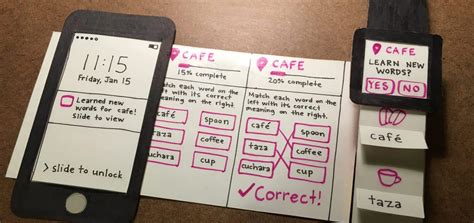 11:15
Friday, Jan 15
Learned new
words for cafe!
slide to view
> slide to unlock
CAFE
15% complete
Match each word on
the left with its correct
meaning on the right.
café spoon
taza coffee
cuchara cup
CAFE
20% complete
Match each word on
the left with its correct
meaning on the right.
café spoon
taza coffee
cuchara cup
✓Correct!
CAFE
LEARN NEW
WORDS?
YES NO
café
taza